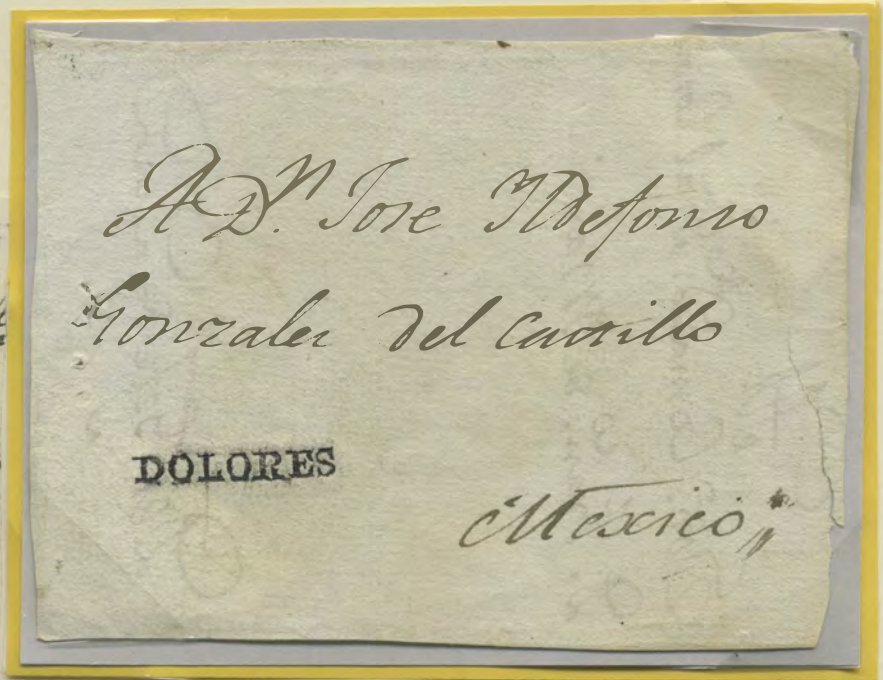 A D.ⁿ Jose Yldefonso
Gonzales del Castillo
DOLORES
Mexico